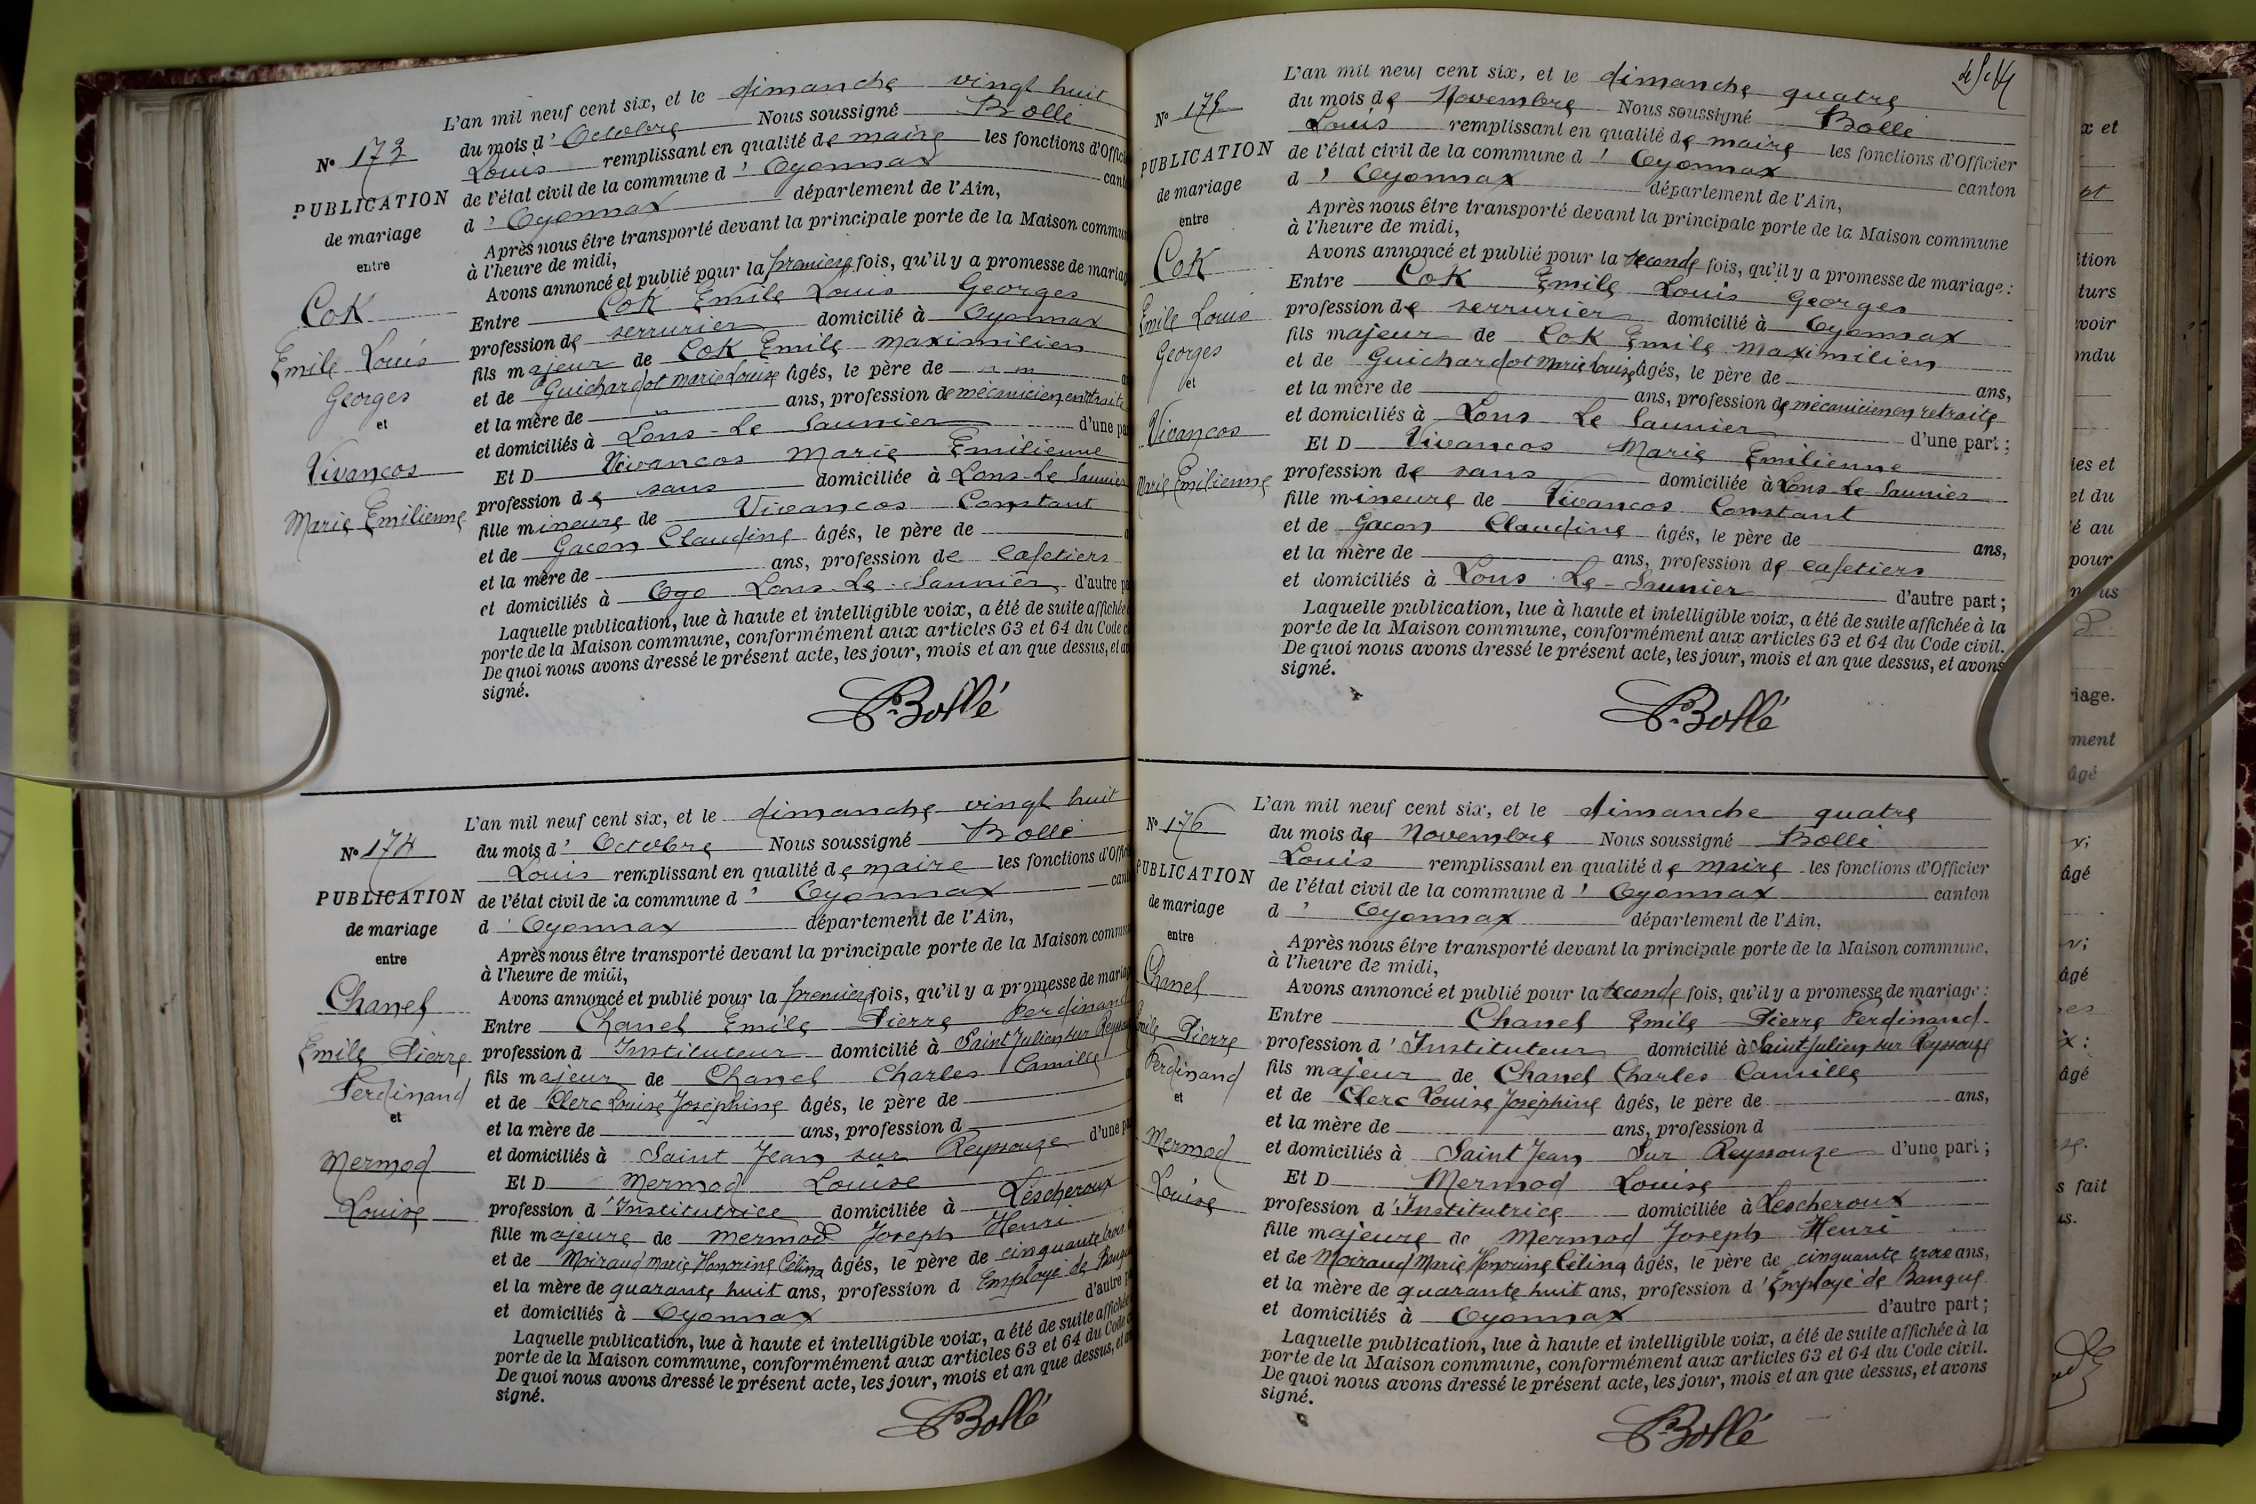 N° 173
PUBLICATION
de mariage
entre
Cok
Emile Louis
Georges
et
Vivancos
Marie Emilienne
L'an mil neuf cent six, et le dimanche vingt huit
du mois d' Octobre Nous soussigné Bollé
Louis remplissant en qualité de maire les fonctions d'Offici
de l'état civil de la commune d' Oyonnax cant
d' Oyonnax département de l'Ain,
Après nous être transporté devant la principale porte de la Maison commun
à l'heure de midi,
Avons annoncé et publié pour la première fois, qu'il y a promesse de mariag
Entre Cok Emile Louis Georges
profession de serrurier domicilié à Oyonnax
fils majeur de Cok Emile Maximilien
et de Guichardot Marie Louise âgés, le père de
et la mère de ans, profession de mécanicien en retraite
et domiciliés à Lons-Le Saunier d'une pa
Et D Vivancos Marie Emilienne
profession de sans domiciliée à Lons-Le Saunier
fille mineure de Vivancos Constant
et de Gacon Claudine âgés, le père de
et la mère de ans, profession de cafetiers
et domiciliés à Oyo Lons-Le-Saunier d'autre pa
Laquelle publication, lue à haute et intelligible voix, a été de suite affichée
porte de la Maison commune, conformément aux articles 63 et 64 du Code c
De quoi nous avons dressé le présent acte, les jour, mois et an que dessus, et av
signé.
Bollé
N° 174
PUBLICATION
de mariage
entre
Chanel
Emile Pierre
Ferdinand
et
Mermod
Louise
L'an mil neuf cent six, et le dimanche vingt huit
du mois d' Octobre Nous soussigné Bollé
Louis remplissant en qualité de maire les fonctions d'Offici
de l'état civil de la commune d' Oyonnax cant
d' Oyonnax département de l'Ain,
Après nous être transporté devant la principale porte de la Maison commun
à l'heure de midi,
Avons annoncé et publié pour la première fois, qu'il y a promesse de mariag
Entre Chanel Emile Pierre Ferdinand
profession d' Instituteur domicilié à Saint Julien sur Reyssou
fils majeur de Chanel Charles Camille
et de Clerc Louise Joséphine âgés, le père de
et la mère de ans, profession d
et domiciliés à Saint Jean sur Reyssouze d'une pa
Et D Mermod Louise
profession d' Institutrice domiciliée à Lescheroux
fille majeure de Mermod Joseph Henri
et de Moiraud Marie Honorine Célina âgés, le père de cinquante trois
et la mère de quarante huit ans, profession d Employé de Banque
et domiciliés à Oyonnax d'autre p
Laquelle publication, lue à haute et intelligible voix, a été de suite affichée
porte de la Maison commune, conformément aux articles 63 et 64 du Code c
De quoi nous avons dressé le présent acte, les jour, mois et an que dessus, et av
signé.
Bollé
N° 175
PUBLICATION
de mariage
entre
Cok
Emile Louis
Georges
et
Vivancos
Marie Emilienne
L'an mil neuf cent six, et le dimanche quatre
du mois de Novembre Nous soussigné Bollé
Louis remplissant en qualité de maire les fonctions d'Officier
de l'état civil de la commune d' Oyonnax canton
d' Oyonnax département de l'Ain,
Après nous être transporté devant la principale porte de la Maison commune
à l'heure de midi,
Avons annoncé et publié pour la seconde fois, qu'il y a promesse de mariage :
Entre Cok Emile Louis Georges
profession de serrurier domicilié à Oyonnax
fils majeur de Cok Emile Maximilien
et de Guichardot Marie Louise âgés, le père de ans,
et la mère de ans, profession de mécanicien en retraite
et domiciliés à Lons Le Saunier d'une part ;
Et D Vivancos Marie Emilienne
profession de sans domiciliée à Lons-Le Saunier
fille mineure de Vivancos Constant
et de Gacon Claudine âgés, le père de ans,
et la mère de ans, profession de cafetiers
et domiciliés à Lons-Le-Saunier d'autre part ;
Laquelle publication, lue à haute et intelligible voix, a été de suite affichée à la
porte de la Maison commune, conformément aux articles 63 et 64 du Code civil.
De quoi nous avons dressé le présent acte, les jour, mois et an que dessus, et avons
signé.
Bollé
N° 176
PUBLICATION
de mariage
entre
Chanel
Emile Pierre
Ferdinand
et
Mermod
Louise
L'an mil neuf cent six, et le dimanche quatre
du mois de Novembre Nous soussigné Bollé
Louis remplissant en qualité de maire les fonctions d'Officier
de l'état civil de la commune d' Oyonnax canton
d' Oyonnax département de l'Ain,
Après nous être transporté devant la principale porte de la Maison commune,
à l'heure de midi,
Avons annoncé et publié pour la seconde fois, qu'il y a promesse de mariage :
Entre Chanel Emile Pierre Ferdinand
profession d' Instituteur domicilié à Saint Julien sur Reyssouze
fils majeur de Chanel Charles Camille
et de Clerc Louise Joséphine âgés, le père de ans,
et la mère de ans, profession d
et domiciliés à Saint Jean Sur Reyssouze d'une part ;
Et D Mermod Louise
profession d' Institutrice domiciliée à Lescheroux
fille majeure de Mermod Joseph Henri
et de Moiraud Marie Honorine Célina âgés, le père de cinquante trois ans,
et la mère de quarante huit ans, profession d' Employé de Banque
et domiciliés à Oyonnax d'autre part ;
Laquelle publication, lue à haute et intelligible voix, a été de suite affichée à la
porte de la Maison commune, conformément aux articles 63 et 64 du Code civil.
De quoi nous avons dressé le présent acte, les jour, mois et an que dessus, et avons
signé.
Bollé